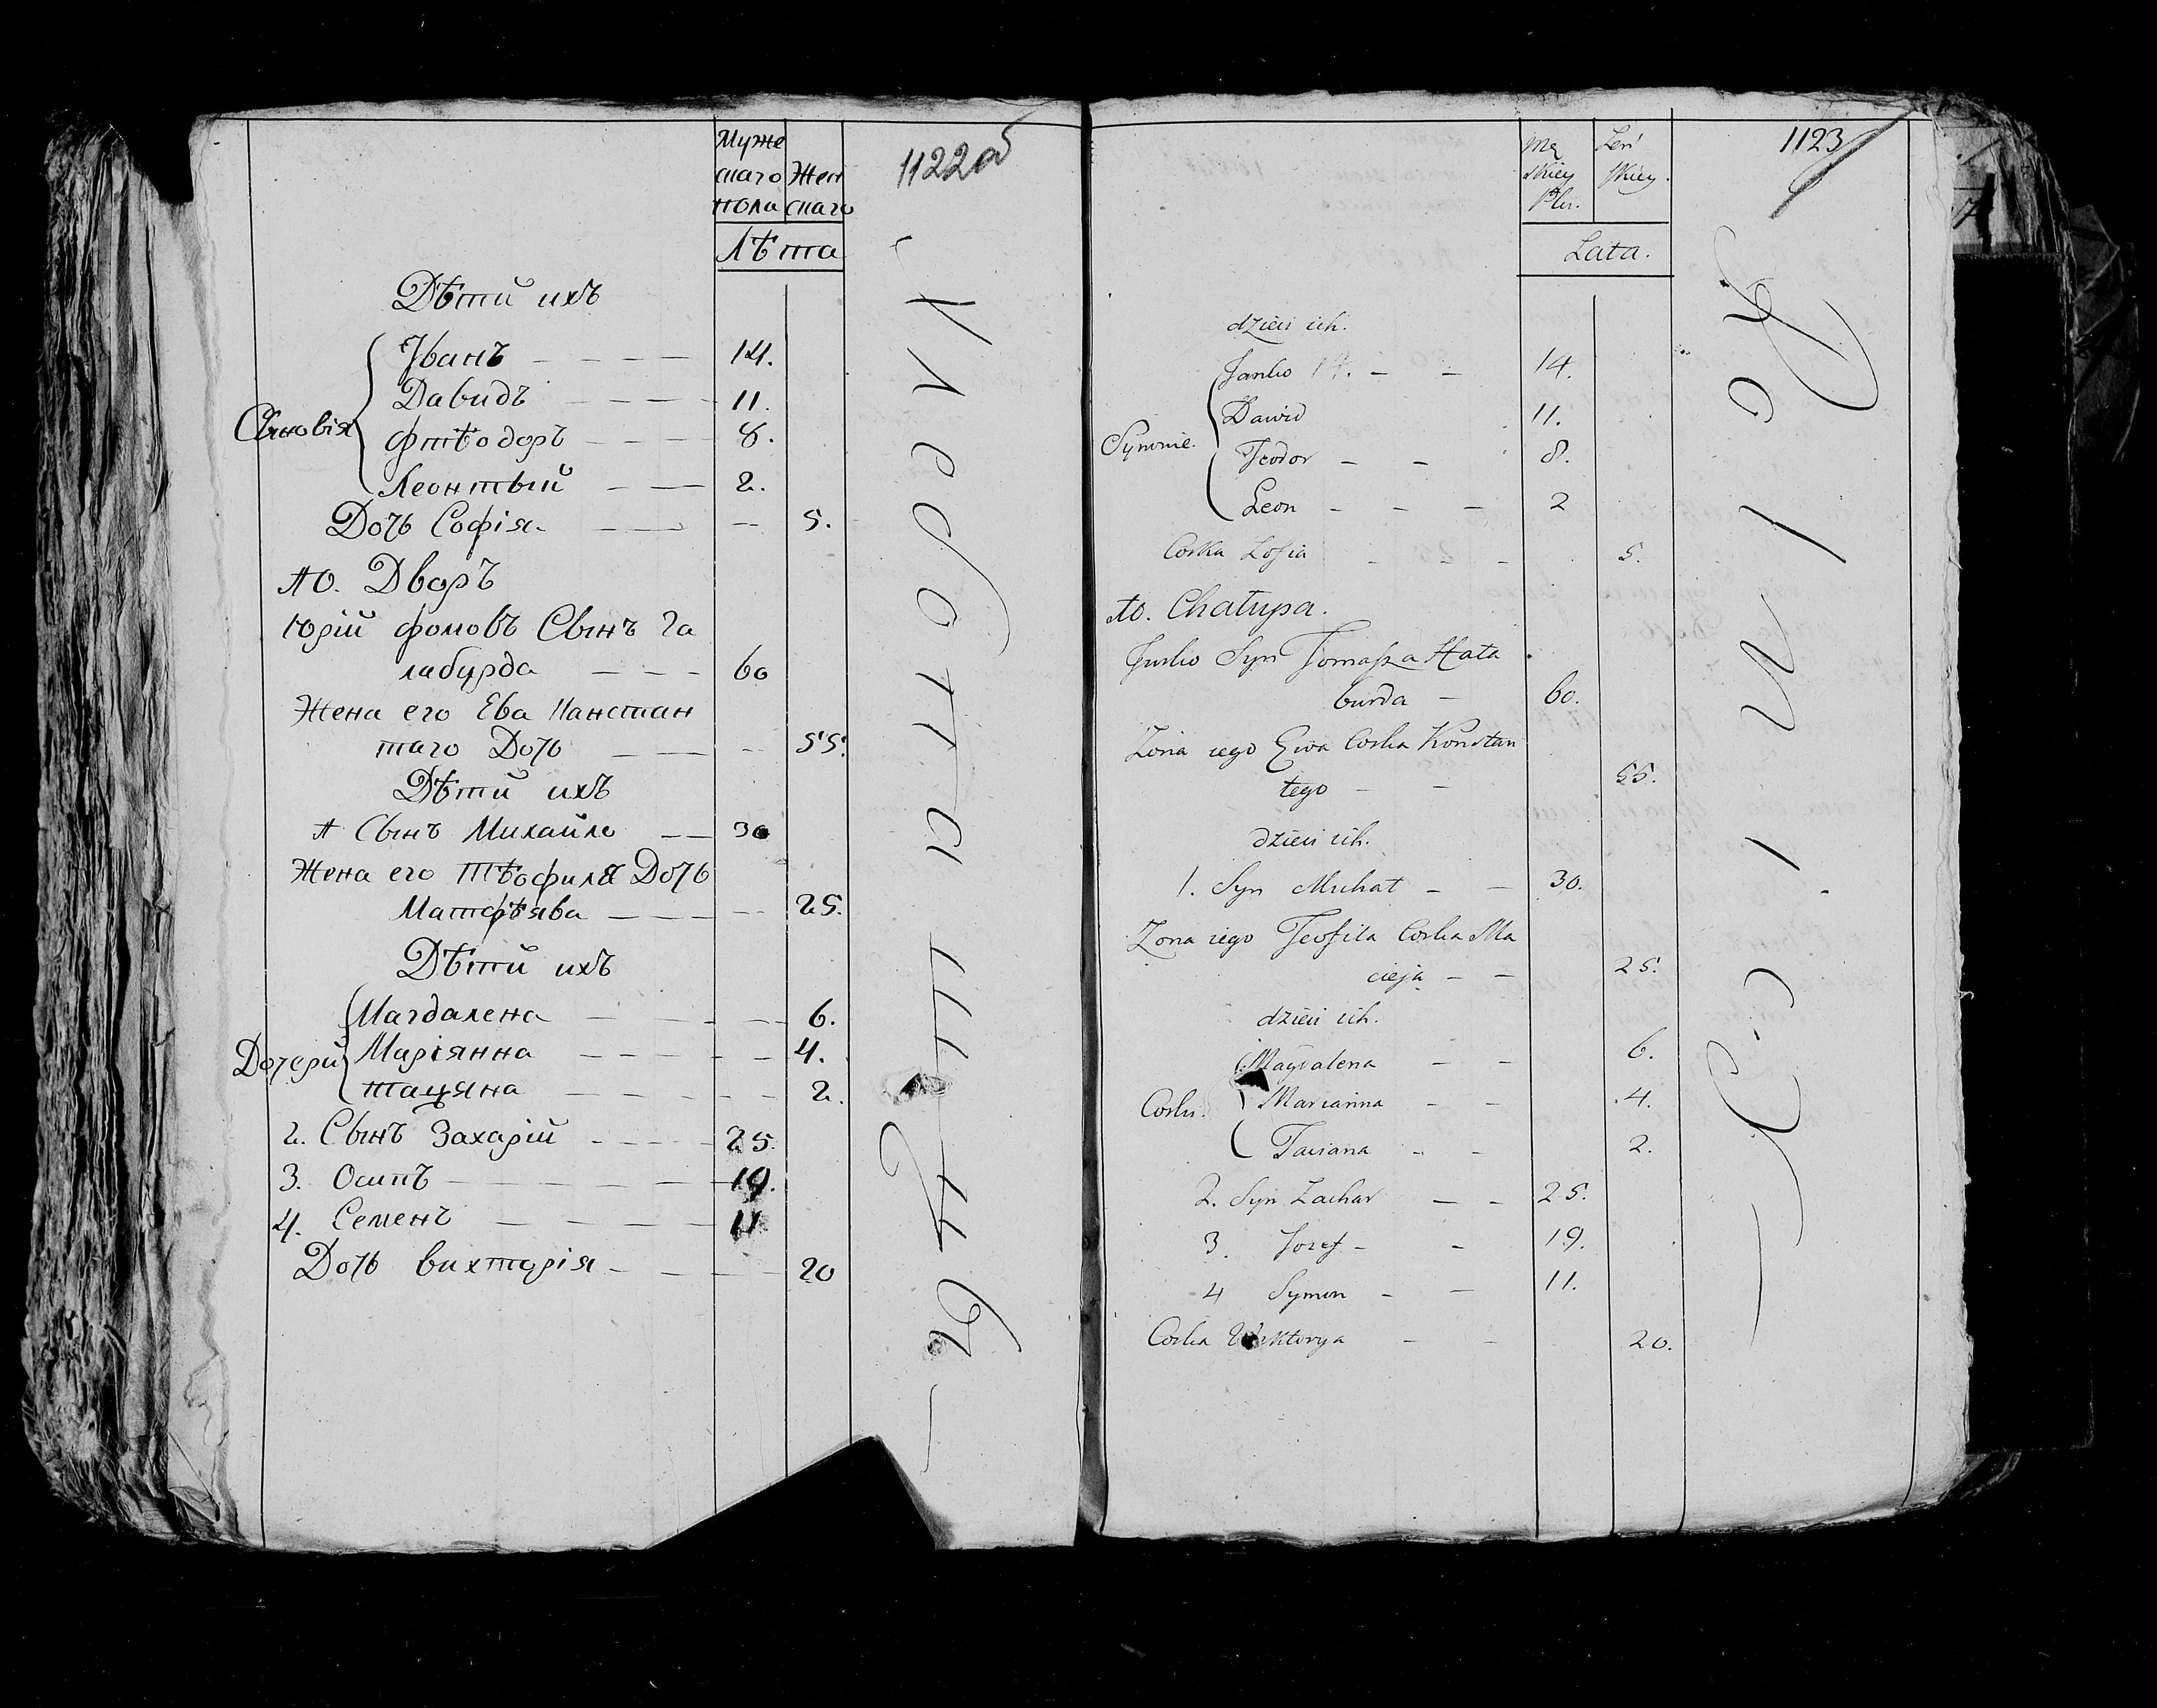 Муже
скаго
пола
Жен
скаго
1122об
Лѣта
Дѣти ихъ
Сыновія
Іванъ 14.
Давидъ 11.
Фтѣодоръ 8.
Леонтьій 2.
Дочь Софія 5.
10. Дворъ
Юрій Фомовъ Сынъ Га
лабурда 60
Жена его Ева Канстан
таго Дочь 55.
Дѣти ихъ
1 Сынъ Михайло 30
Жена его Тѣофиля Дочь
Матфѣява 25.
Дѣти ихъ
Дочерй
Магдалена 6.
Маріянна 4.
Тацяна 2.
2. Сынъ Захарій 25.
3. Осипъ 19.
4. Семенъ 11.
Дочь Вихторія 20
Mę
skiey
Płci.
Żeń
skiey.
1123
Lata.
dzieci ich.
Synowie.
Janko 14. 14.
Dawid 11.
Teodor 8.
Leon 2
Corka Zofia 5.
10. Chałupa.
Jurko Syn Tomasza Hała
burda 60.
Żona iego Ewa Corka Konstan
tego 55.
dzieci ich.
1. Syn Michał 30.
Żona iego Teofila Corka Ma
cieja 25.
dzieci ich.
Corki
Magdalena 6.
Marianna 4.
Taciana 2.
2. Syn Zachar 25.
3. Jozef 19.
4 Symon 11.
Corka Wiktorya 20.